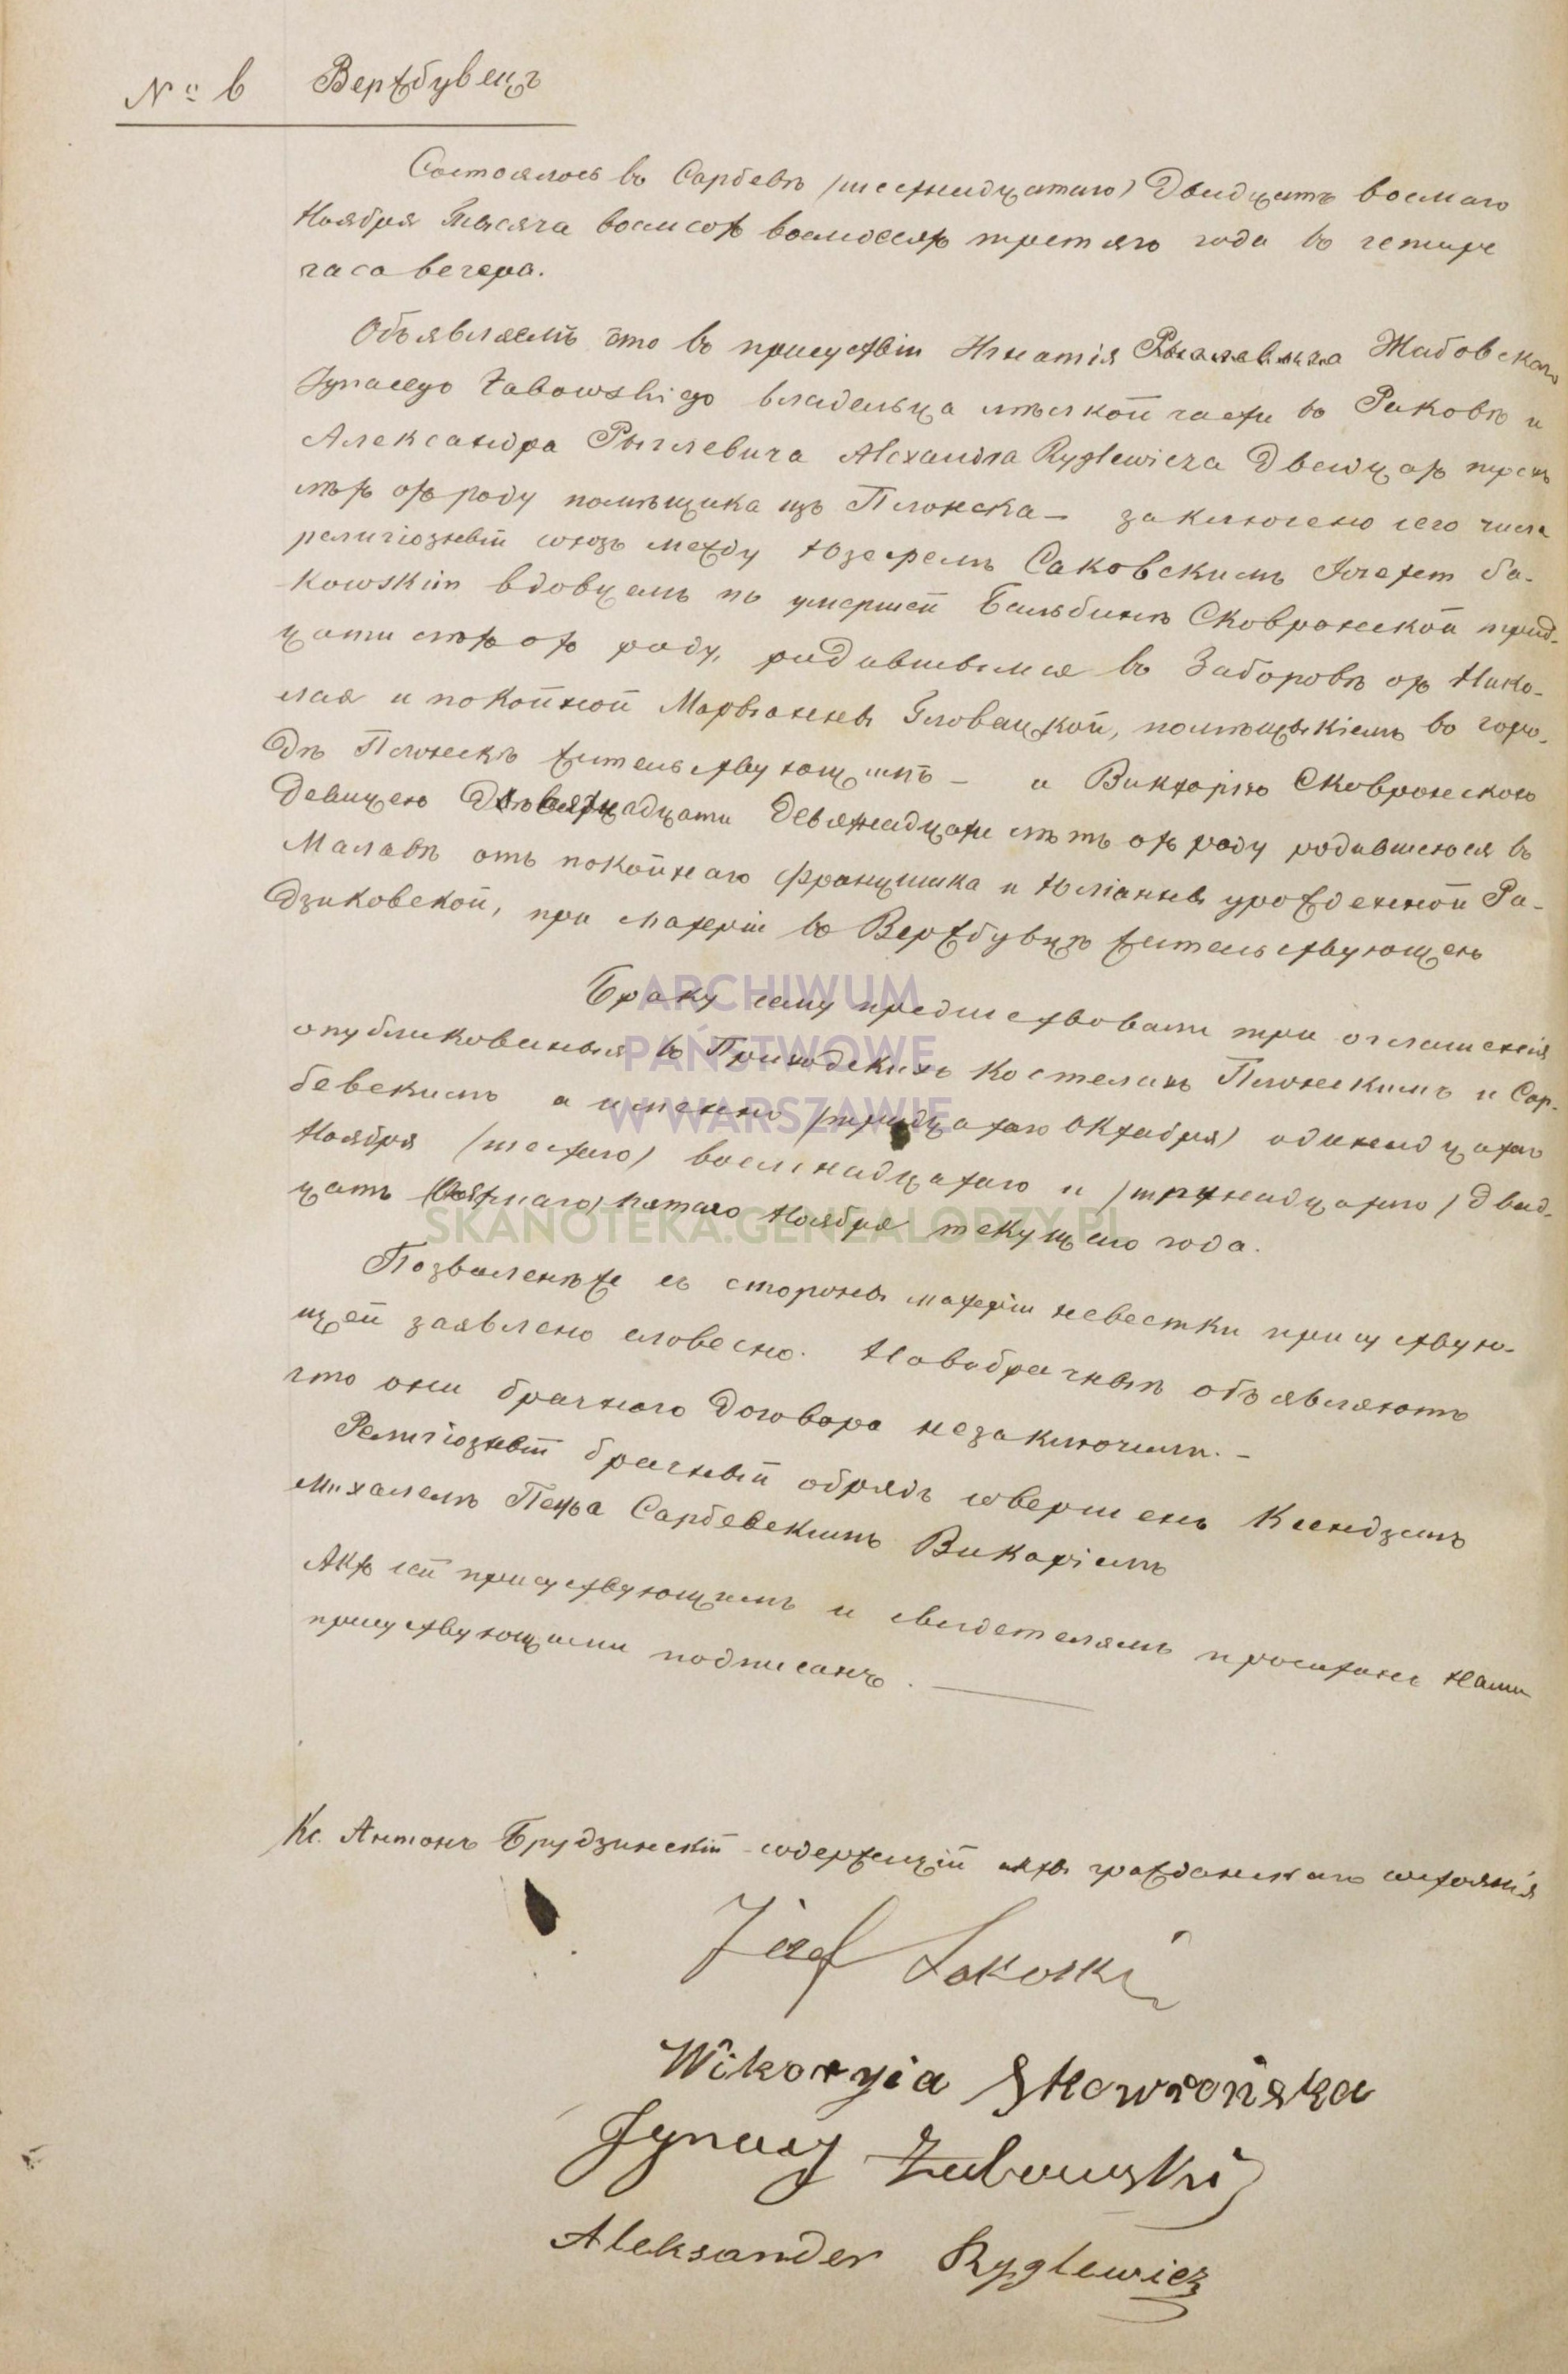 № 6 Вержбувецъ
Состоялось въ Сарбевѣ /шестнадцатаго/ двадцать восмаго
Ноября тысяча восмсотъ восмдесятъ третяго года въ четыре
часа вечера.
Объявляемъ что въ присутствіи Игнатія Жабовского
Ignacego Żabowskiego владельца мѣлкой части въ Раковѣ и
Александра Рыглевича Alexandra Ryglewicza двадцать трехъ
лѣтъ отъ роду помѣщика изъ Плонска — заключено сего числа
религіозный союзъ между Юзефемъ Саковскимъ Józefem Sa-
kowskim вдовцемъ по умершей Бальбинѣ Сковронской трид-
цати лѣтъ отъ роду, родившымся въ Заборовѣ отъ Нико-
лая и покойной Марыанны Гловацкой, помѣщыкіемъ въ горо-
дѣ Плонскѣ жительствующимъ — и Викторіею Сковронскою
девицею девятнадцати лѣтъ отъ роду родившеюся въ
Малавѣ отъ покойнаго Францишка и Юліанны урожденной Ра-
дзиковской, при матеріи въ Вержбувцѣ жительствующею
Браку сему предшествовали три оглашенія
опубликованыя въ Приходскихъ Костелахъ Плонскимъ и Сар-
бевскимъ а именно /тридцатаго Октабря/ одинадцатаго
Ноября /шестаго/ восмнадцатаго и /тринадцатаго/ двад-
цать пятаго Ноября текущего года.
Позволенѣе съ стороны матеріи невестки присуствую-
щей заявлено словесно. Новобрачныѣ объявляютъ
что они брачного договора незаключили. —
Религіозный брачный обрядъ совершенъ Ксендземъ
Михалемъ Пенса Сарбевскимъ Викаріемъ
Актъ сей присуствующимъ и свидетелямъ прочитанъ Нами
присуствующими подписанъ. —
Кс. Антонъ Брудзинскій содержащій акты гражданскаго состоянія
Józef Sakoski
Wikoryia Skowrońska
Ignacy Żabowski
Aleksander Ryglewicz
ARCHIWUM
PAŃSTWOWE
W WARSZAWIE
SKANOTEKA.GENEALODZY.PL